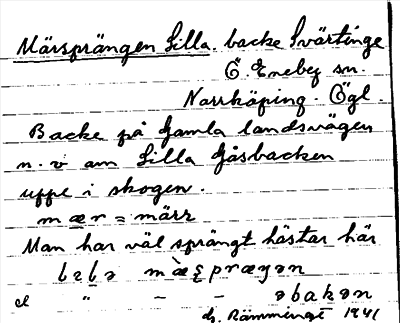 Märsprängen Lilla. backe Svärtinge
Ö. Eneby sn.
Norrköping. Ögl.
Backe på Gamla landsvägen
n. v om Lilla Gåsbacken
uppe i skogen.
mær = märr
Man har väl sprängt hästar här
mæ̀ʂpræŋən
el " – – əbakən
G. Rämmingt 1941